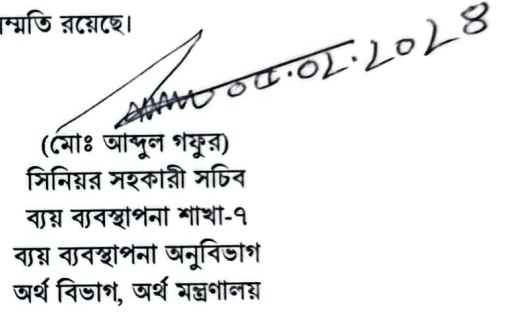 ম্মতি রয়েছে।
০৫.০২.২০২৪
(মোঃ আব্দুল গফুর)
সিনিয়র সহকারী সচিব
ব্যয় ব্যবস্থাপনা শাখা-৭
ব্যয় ব্যবস্থাপনা অনুবিভাগ
অর্থ বিভাগ, অর্থ মন্ত্রণালয়